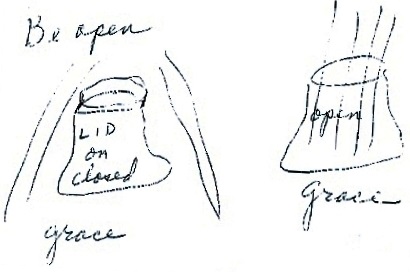 Be open
LID
on
closed
grace
open
Grace